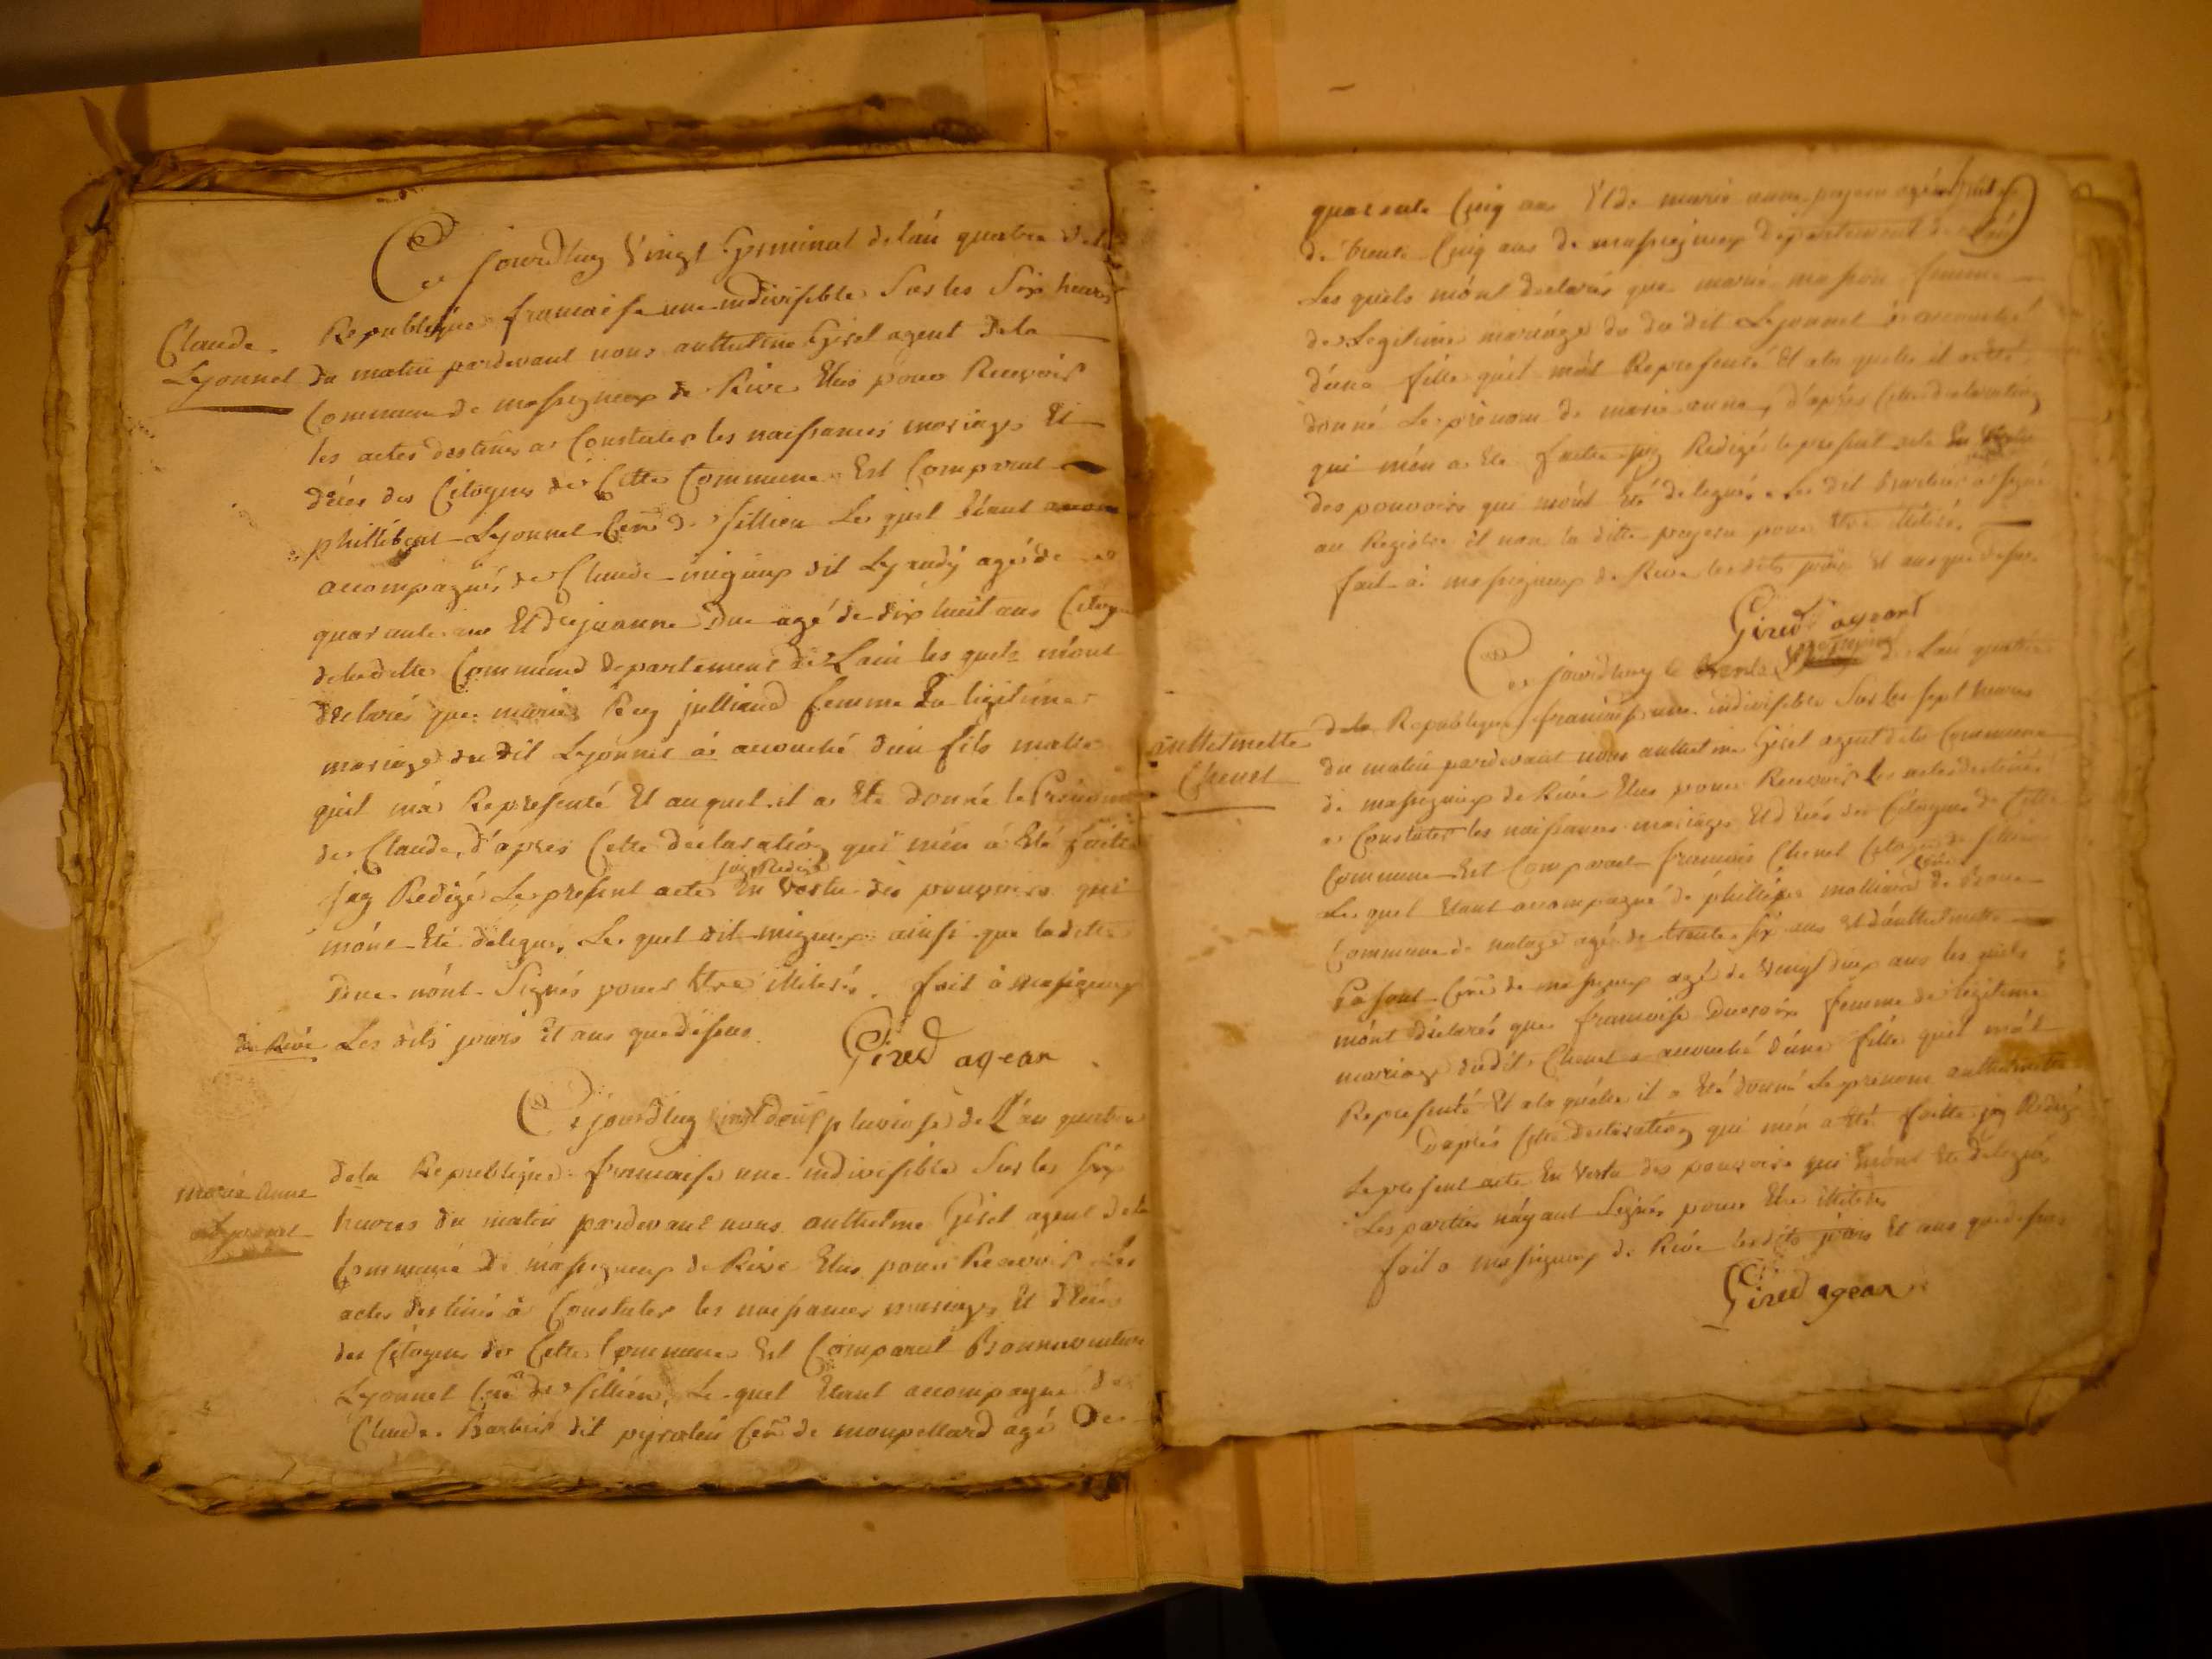 Ce jourdhuy Vingt Germinal de lán quatre dela
Claude. Republique francaise une indivisible Sur les Six heures
Lyonnet du matin pardevant nous anthelme Giret agent dela
Commune de massigneux de Rive Elus pour Recevoir
les actes destinés a Constater les naissances mariages Et
décés des Citoyens de Cette Commune Est Comparut
phillibert Lyonnet de Sillieu Le quel Etant
accompagnés de Claude migneux dit agé de
quarante ans Et de jeanne Due agé de dix huit ans
deladitte Commune departement de Lain les quels mónt
declarés que marie Rey julliand femme du ligitime
mariage du dit Lyonnet á accouché dún fils malle
quil má Representé Et auquel il a Eté donné le Prénom
de Claude, d'apres Cette declaration qui mén á Eté faitte
jay Redigé Le present acte En Vertu des pouvoirs qui
mónt Eté délegué, Le quel dit migneux ainsi que laditte
Due nónt Signés pour Etre illiterés. fait á Massigneux
de Rive Les dits jours Et ans que dessus.
Gired agean
Ce jourdhuy Vingt pluviose de L'án quatre
dela Republique francaise une indivisible Sur les Six
marie Anne heures du matin pardevant nous anthelme Giret agent dela
Lyonnet Commune de massigneux de Rive Elus pour Recevoir Les
actes destinés á Constater les naissances mariages Et décés
des Citoyens de Cette Commune Est Comparut Bonnaventure
Lyonnet de Sillieu, Le quel Etant accompagné de
Claude. Barbier dit de monpellard agé De
quarante Cinq ans Et de marie anne pejeou agée
de trente Cinq ans de massigneux Departement de Lain
Les quels mónt declarés que marie masson femme
de Legitime mariage du du dit Lyonnet á accouché
d'une fille quil mát Representé Et ala quelle il a été
donné Le prénom de marie anne, d'aprés Cette declaration
qui mén a Eté faitte jay Redigé le present acte En Vertu
des pouvoirs qui mónt Eté delegués. Le dit Barbier a signé
au Registre Et non la ditte pejeou pour Etre illiterée
fait á massigneux de Rive les dits jours Et ans que dessus
Gired ageant
Ce jourdhuy le trente de Lan quatre
dela Republique francaise une indivisible Sur les Sept heures
anthelmette du matin pardevant nous anthelme Giret agent dela Commune
Chenet de massigneux de Rive Elus pour Recevoir Les actes destinés
a Constater les naissances mariages Et décés des Citoyens de Cette
Commune Est Comparut francois Chenet Citoyen de Sillieu
Le quel Etant accompagné de phillipe molliard de
Commune de natage agé de trente Six ans Et d'anthelmette
de massigneux agé de Vingt deux ans les quels
mónt déclarés que francoise Ducroix femme de legitime
mariage dudit Chenet a accouché dúne fille quil mát
Representé Et ala quelle il a Eté donné Le prenom anthelmette
Daprés Cette declaration qui mén a Eté faitte jay Redigé
Le present acte En Vertu des pouvoirs qui mónt Eté delegués
Les parties náyant Signés pour Etre illiterés
fait a massigneux de Rive les dits jours Et ans que dessus
Gired agean